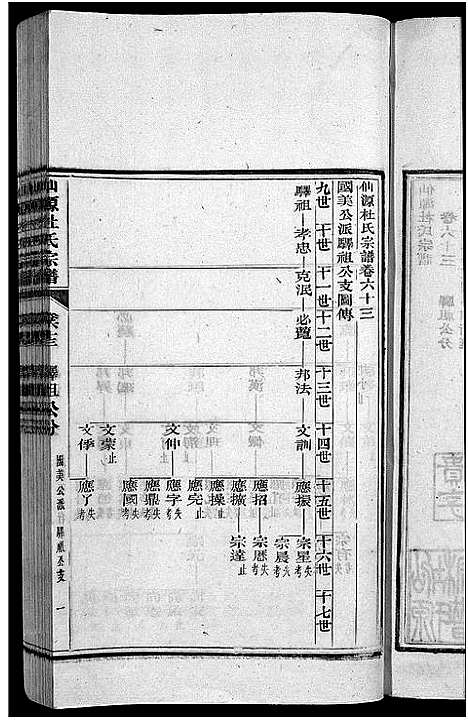 仙源杜氏宗譜卷六十三
國美公派驛祖公支圖傳
九世 十世 十一世 十二世 十三世 十四世 十五世 十六世 十七世
驛祖 孝忠 克泯 必蘴 邦法 文訓 應振 宗星失考
宗晨失考
應招 宗曆失考
應擴 宗達止
應操止
應完止
文仲 應字失考
應鼎失考
應國失考
文蒙止
文㑋 應了失考
仙源杜氏宗譜
卷六十三 驛祖公分
國美公派 驛祖公支 一
仙源杜氏宗譜
卷六十三 驛祖公分